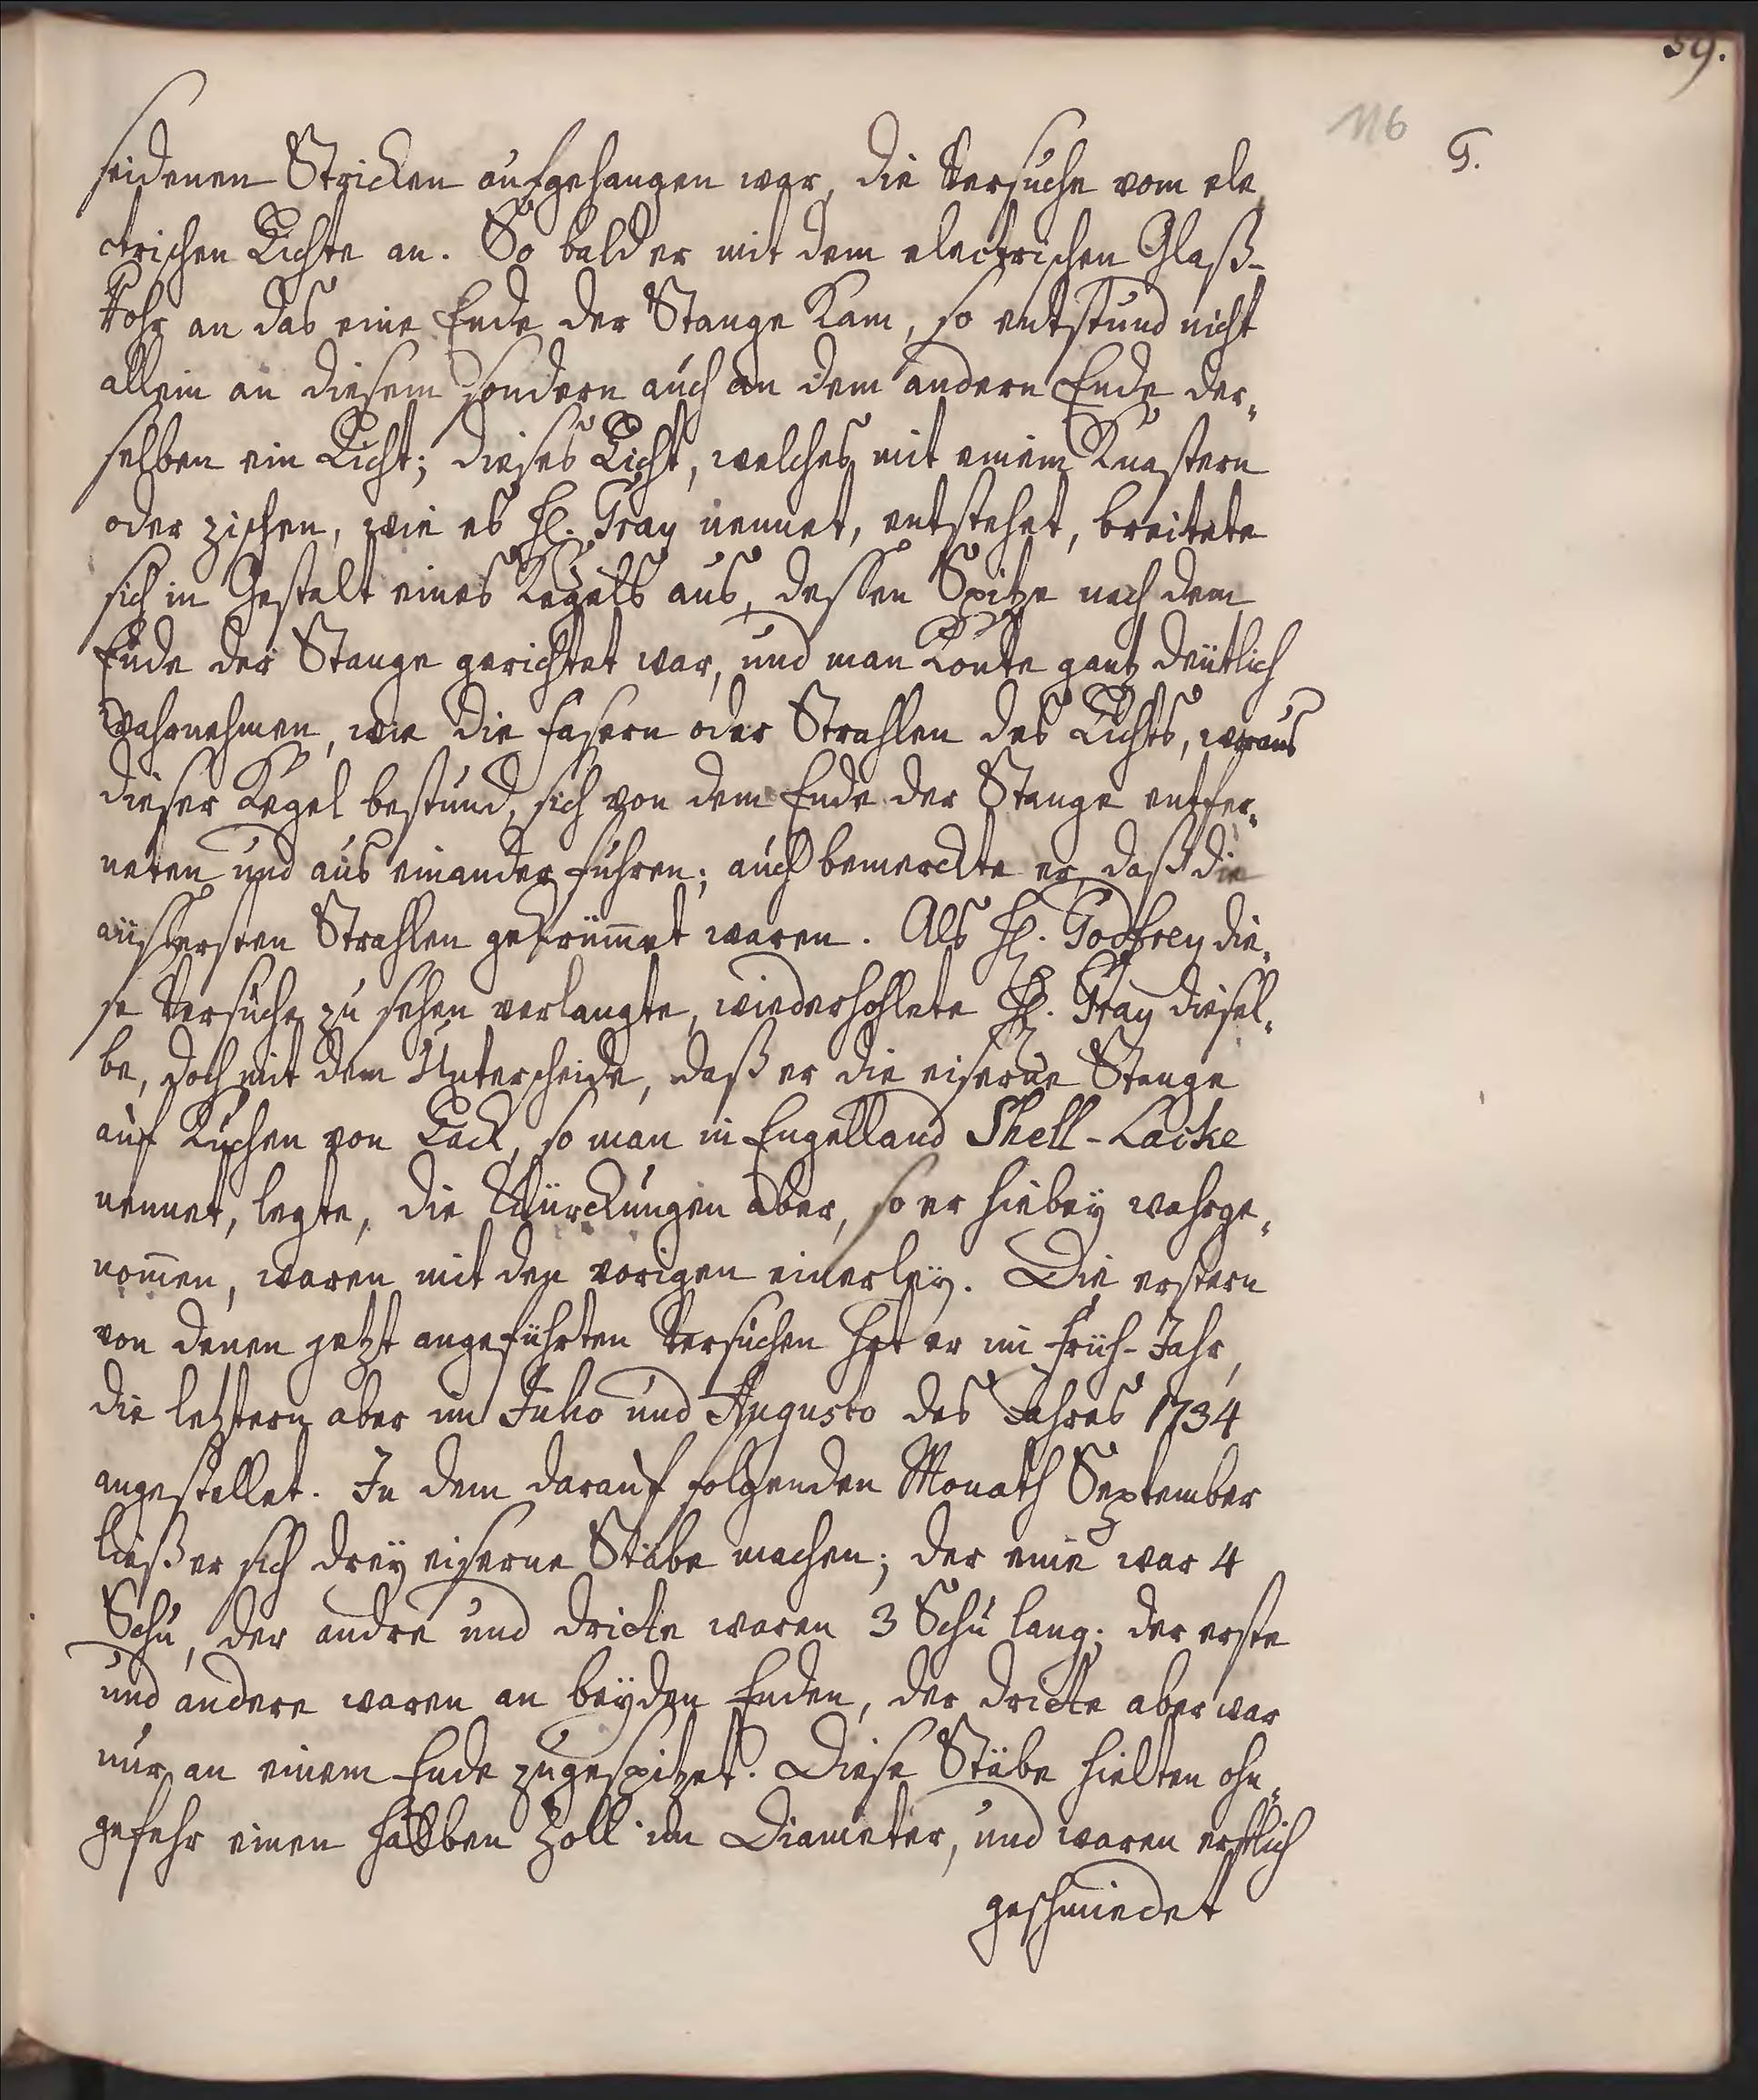 59.
116
G.
seidenen Stricken aufgehangen war, die Versuche vom ele,
ctrischen Lichte an. So bald er mit dem electrischen Glaß-
Rohr an das eine Ende der Stange kam, so entstund nicht
allein an diesem sondern auch an dem andern Ende der,
selben ein Licht; dieses Licht, welches mit einem Knastern
oder zischen, wie es H. Gray nennet, entstehet, breitete
sich in Gestalt eines Kegels aus, dessen Spitze nach dem
Ende der Stange gerichtet war, und man konte gantz deutlich
wahrnehmen, wie die Fasern oder Strahlen des Lichts, woraus
dieser Kegel bestund, sich von dem Ende der Stange entfer,
neten und aus einander fuhren; auch bemerckte er, daß die
äussersten Strahlen gekrüm̄et waren. Als H. Godfrey die,
se Versuche zu sehen verlangte, wiederhohlete H. Gray diesel,
be, doch mit dem Unterscheide, daß er die eiserne Stange
auf Kuchen von Lack, so man in Engelland Shell-Lacke
nennet, legte, die Würckungen aber, so er hiebey wahrge,
nom̄en, waren mit den vorigen einerley. Die erstern
von denen jetzt angeführten Versuchen hat er im Früh-Jahr,
die letztern aber im Julio und Augusto des Jahres 1734
angestellet. In dem darauf folgenden Monath September
ließ er sich drey eiserne Stäbe machen; der eine war 4
Schu, der andre und dritte waren 3 Schu lang; der erste
und andere waren an beyden Enden, der dritte aber war
nur an einem Ende zugespitzet. Diese Stäbe hielten ohn,
gefehr einen halben Zoll im Diameter, und waren erstlich
geschmiedet